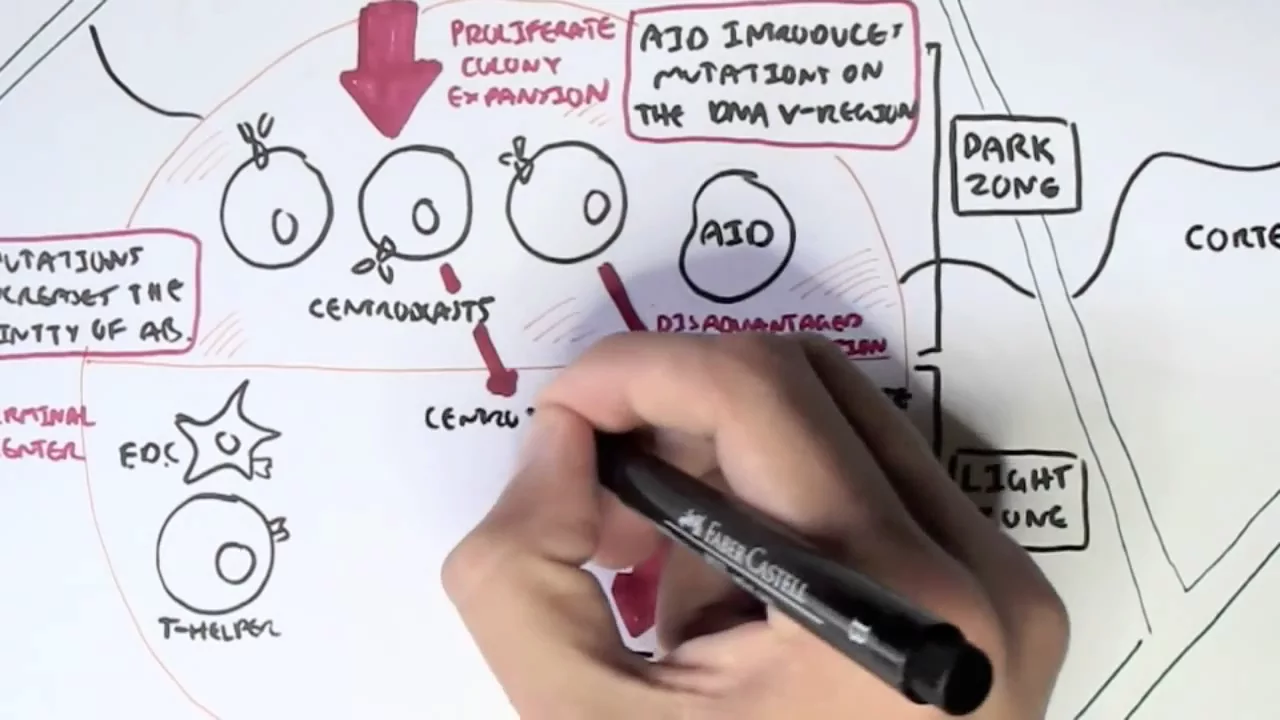 PROLIFERATE
COLONY
EXPANSION
AID INTRODUCES
MUTATIONS ON
THE DNA V-REGION
DARK
ZONE
CORTE
AID
UTATIONS
CREASES THE
INTY OF AB.
CENTROBLASTS
DISADVANTAGED
TION
RMINAL
ENTER
CENTRO
FDC
LIGHT
ZONE
FABER CASTELL
T-HELPER